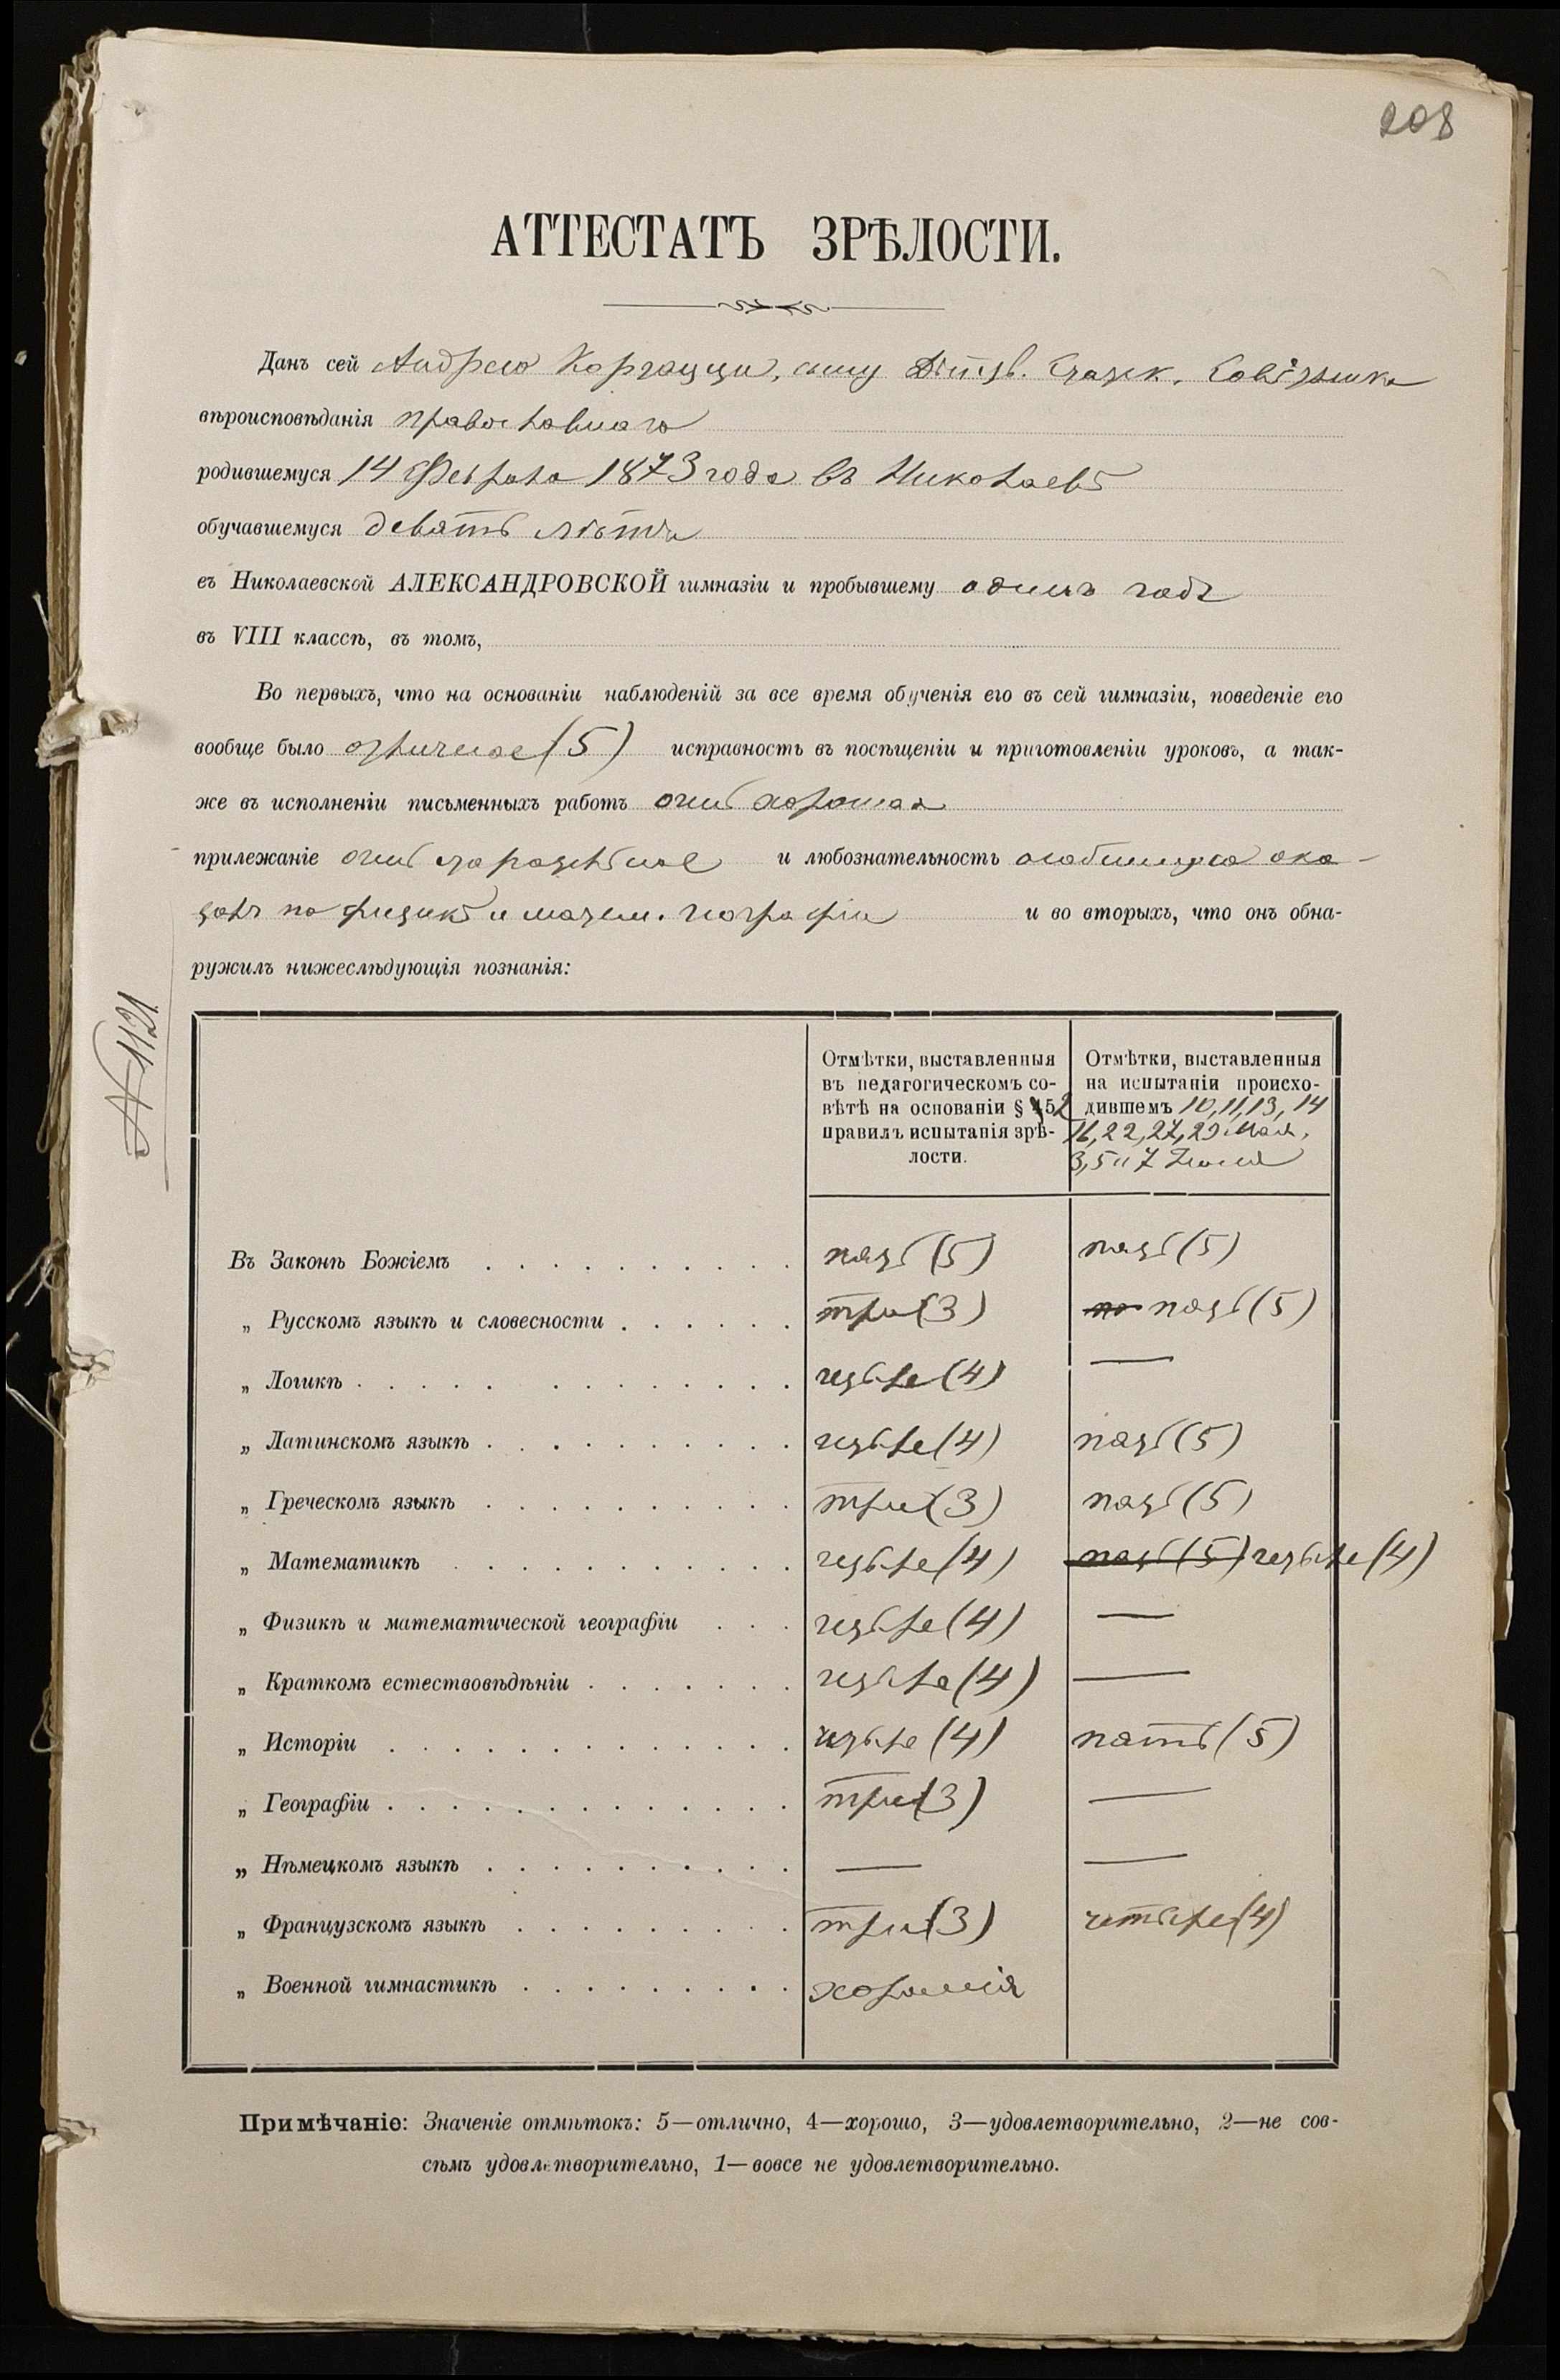 208
АТТЕСТАТЪ ЗРѢЛОСТИ.
Данъ сей Андрею Каргацци, сыну Дѣйств. Статск. Совѣтника
вѣроисповѣданія православнаго
родившемуся 14 Февраля 1873 года въ Николаевѣ
обучавшемуся девять лѣтъ
въ Николаевской АЛЕКСАНДРОВСКОЙ гимназіи и пробывшему одинъ годъ
въ VIII классѣ, въ томъ,
Во первыхъ, что на основаніи наблюденій за все время обученія его въ сей гимназіи, поведеніе его
вообще было отличное (5) исправность въ посѣщеніи и приготовленіи уроковъ, а так-
же въ исполненіи письменныхъ работъ очень хорошая
прилежаніе очень старательное и любознательность особенную ока-
залъ по физикѣ и матем. географіи и во вторыхъ, что онъ обна-
ружилъ нижеслѣдующія познанія:
№ 1121
Отмѣтки, выставленныя въ педагогическомъ со-вѣтѣ на основаніи § 52 правилъ испытанія зрѣ-лости.
Отмѣтки, выставленныя на испытаніи происхо-дившемъ 10, 11, 13, 14 16, 22, 27, 29 Мая, 3, 5 и 7 Іюня
Въ Законѣ Божіемъ пять (5) пять (5)
„ Русскомъ языкѣ и словесности три (3) пять (5)
„ Логикѣ четыре (4) —
„ Латинскомъ языкѣ четыре (4) пять (5)
„ Греческомъ языкѣ три (3) пять (5)
„ Математикѣ четыре (4) пять (5) четыре (4)
„ Физикѣ и математической географіи четыре (4) —
„ Краткомъ естествовѣдѣніи четыре (4) —
„ Исторіи четыре (4) пять (5)
„ Географіи три (3) —
„ Нѣмецкомъ языкѣ — —
„ Французскомъ языкѣ три (3) четыре (4)
„ Военной гимнастикѣ хорошія
Примѣчаніе: Значеніе отмѣтокъ: 5—отлично, 4—хорошо, 3—удовлетворительно, 2—не сов-
сѣмъ удовлетворительно, 1—вовсе не удовлетворительно.